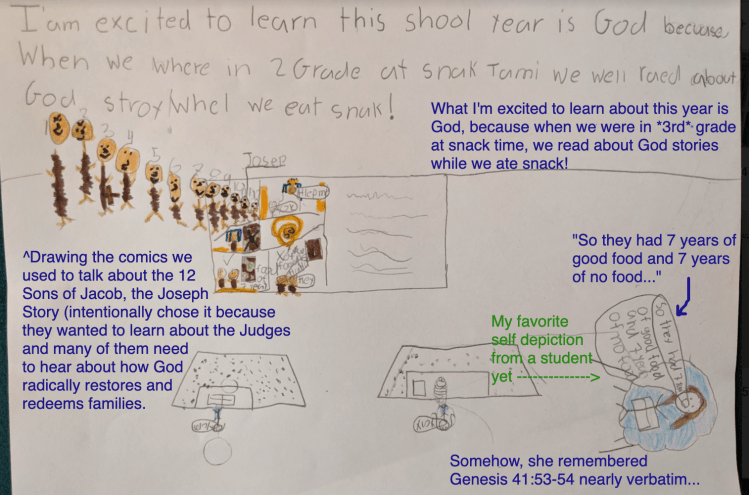 I'am excited to learn this shool year is God becuase
When we where in 2 Grade at snak Tami we well raed about
God stroy Whel we eat snak!
What I'm excited to learn about this year is
God, because when we were in *3rd* grade
at snack time, we read about God stories
while we ate snack!
1 2 3 4 5 6 7 8 9
Josep
^Drawing the comics we
used to talk about the 12
Sons of Jacob, the Joseph
Story (intentionally chose it because
they wanted to learn about the Judges
and many of them need
to hear about how God
radically restores and
redeems families.
"So they had 7 years of
good food and 7 years
of no food..."
My favorite
self depiction
from a student
yet -------------->
So they had 7 years
of good food
and 7 years
of no food
Somehow, she remembered
Genesis 41:53-54 nearly verbatim...